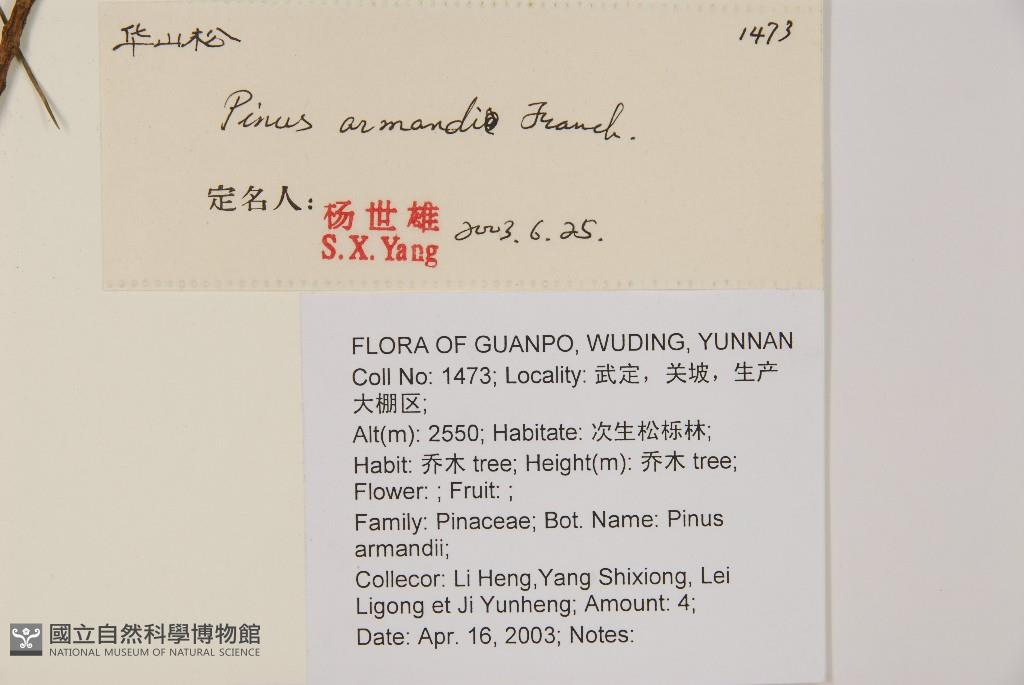 华山松
1473
Pinus armandi Franch.
定名人:
杨世雄
S.X.Yang
2003.6.25.
FLORA OF GUANPO, WUDING, YUNNAN
Coll No: 1473; Locality: 武定，关坡，生产
大棚区;
Alt(m): 2550; Habitate: 次生松栎林;
Habit: 乔木 tree; Height(m): 乔木 tree;
Flower: ; Fruit: ;
Family: Pinaceae; Bot. Name: Pinus
armandii;
Collecor: Li Heng,Yang Shixiong, Lei
Ligong et Ji Yunheng; Amount: 4;
Date: Apr. 16, 2003; Notes:
國立自然科學博物館
NATIONAL MUSEUM OF NATURAL SCIENCE